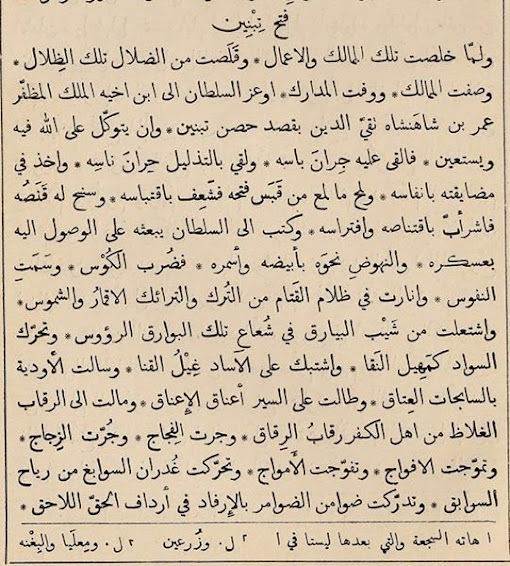 فتح تِبْنِين
ولمّا خلصت تلك الممالك والاعمال * وقَلَصت من الضلال تلك الظِلال *
وصفت الممالك * ووفت المدارك * اوعز السلطان الى ابن اخيه الملك المظفّر
عمر بن شاهَنشاه تقيّ الدين بقصد حصن تبنين * وان يتوكّل على الله فيه
ويستعين * فالقى عليه جِرانَ باسه * ولقي بالتذليل حِرانَ ناسِه * واخذ في
مضايقته بانفاسه * ولمح ما لمع من قَبَس فتحه فشَعِف باقتباسه * وسنح له قَنَصُه
فاشرأبّ باقتناصه وافتراسه * وكتب الى السلطان يبعثه على الوصول اليه
بعسكره * والنهوضِ نحوَه بأبيضه وأسمره * فضُرب الكُوْس * وسَمَتِ
النفوس * وانارت في ظلام القَتام من التُرك والترائك الاقمارُ والشموس *
واشتعلت من شَيْب البيارق في شُعاع تلك البوارق الرؤوس * وتحرّك
السواد كمَهِيل النَقا * واشتبك على الآساد غِيْلُ القنا * وسالت الأودية
بالسابحات العِتاق * وطالت على السير أعناق الإعناق * ومالت الى الرقاب
الغلاظ من اهل الكفر رقابُ الرِقاق * وجرت الفِجاج * وجُرّت الزِجاج *
وتموّجت الافواج * وتفوّجت الأمواج * وتحرّكت غُدران السوابغ من رياح
السوابق * وتدرّكت ضوامن الضوامر بالإرفاد في أرداف الحقّ اللاحق *
١ هاته السجعة والتي بعدها ليستا في ا ٢ ل. وزُرعين ٣ ل. ومعليا والبِغْنه